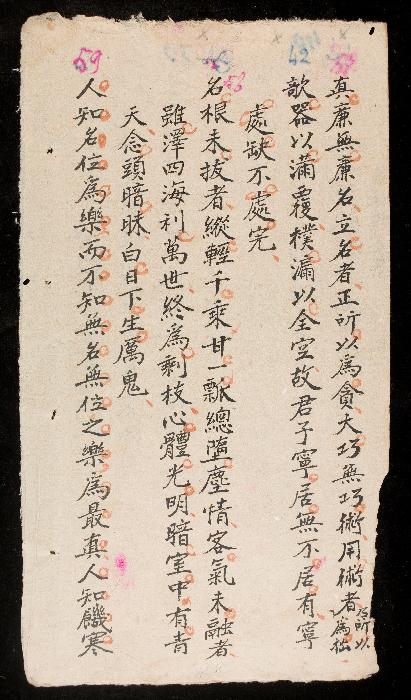 真廉無廉名立名者正所以為貪大巧無巧術用術者所以為拙
欹器以滿覆樸滿以全空故君子寧居無不居有寧
處缺不處完
名根未拔者縱輕千乘甘一瓢總墮塵情客氣未融者
雖澤四海利萬世終為剩技心體光明暗室中有青
天念頭暗昧白日下生厲鬼
人知名位為樂而不知無名無位之樂為最真人知饑寒
59
42
58